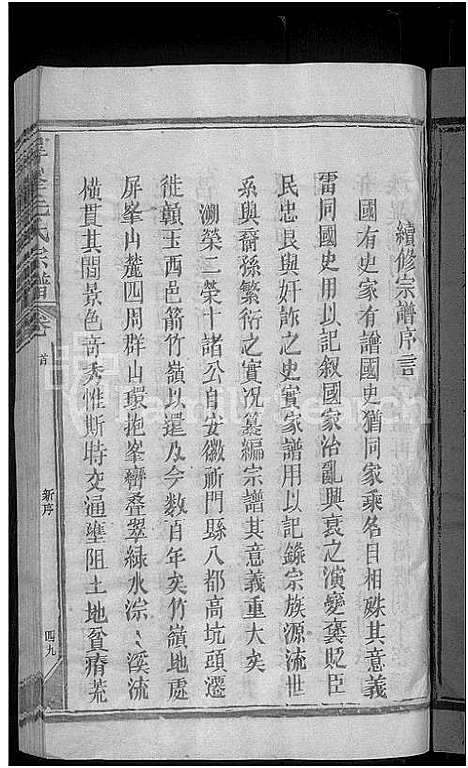 續修宗譜序言
國有史家有譜國史猶同家乘名目相殊其意義
雷同國史用以記叙國家治亂興衰之演變褒貶臣
民忠良與奸詐之史實家譜用以記錄宗族源流世
系與裔孫繁衍之實况纂編宗譜其意義重大矣
溯榮二榮十諸公自安徽祈門縣八都高坑頭遷
徙贛玉西邑箭竹嶺以還及今数百年矣竹嶺地處
屏峯山麓四周群山環抱峯巒叠翠緑水淙〻溪流
横貫其間景色奇秀惟斯時交通壅阻土地貧瘠荒
毛氏宗譜
卷
首
新序
四九
FamilySearch